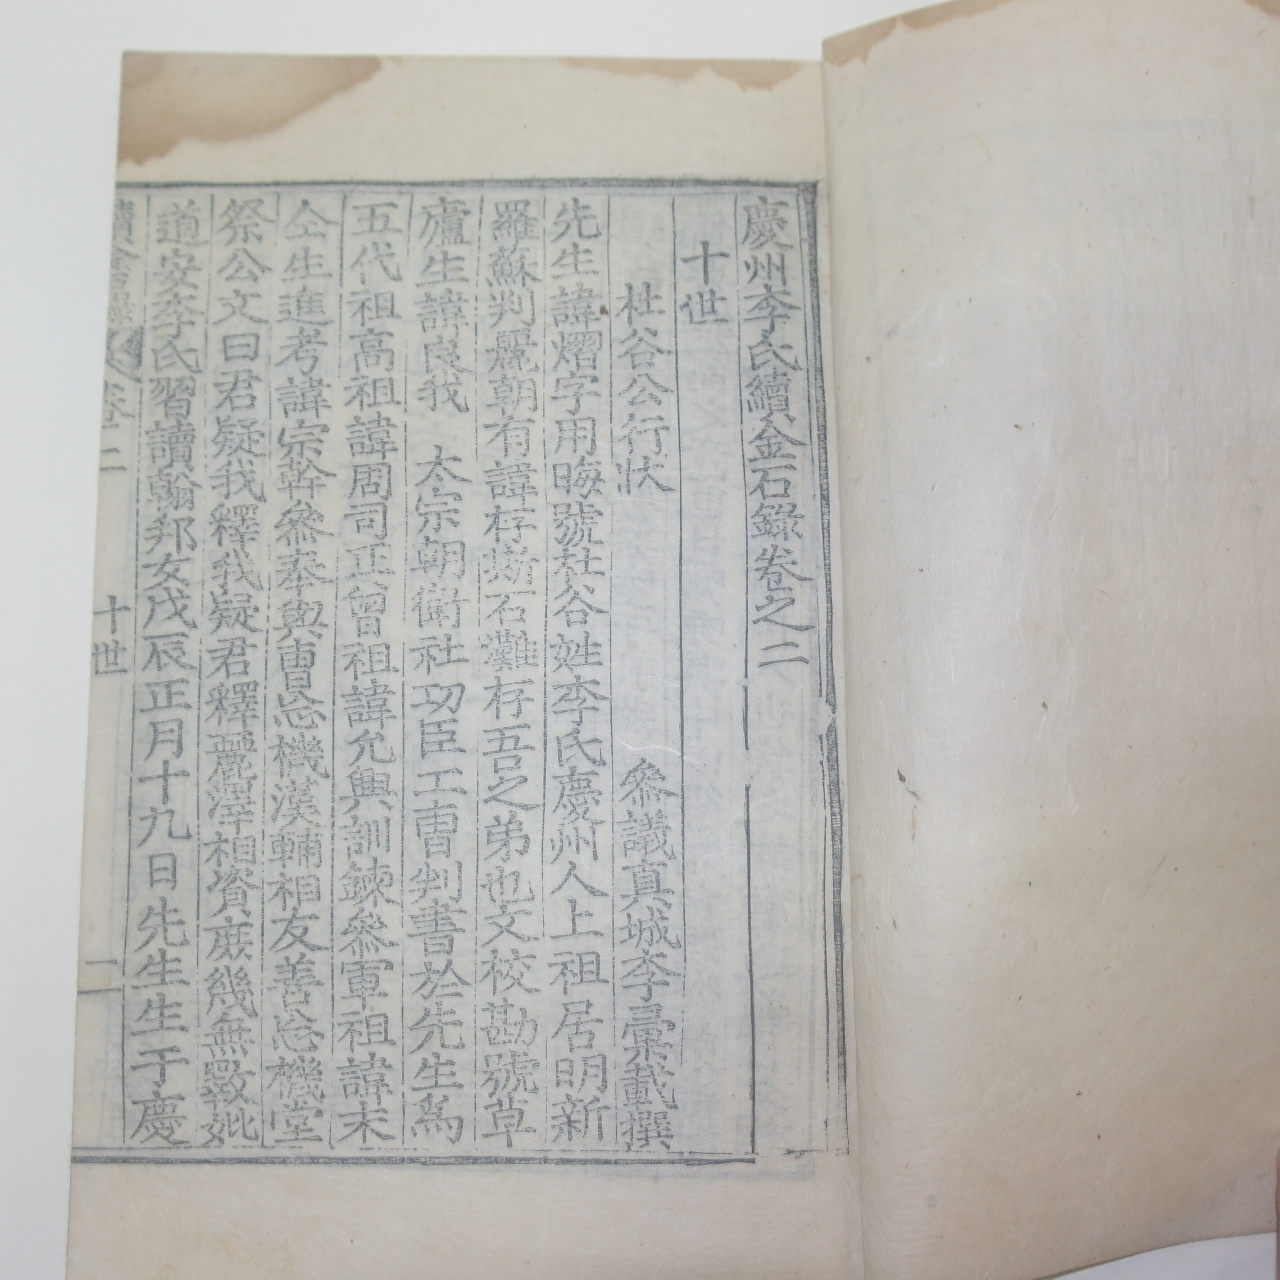 慶州李氏續金石錄卷之二
十世
杜谷公行狀 參議真城李彙載撰
先生諱熠字用晦號杜谷姓李氏慶州人上祖居明新
羅蘇判麗朝有諱存斯石灘存吾之弟也文校勘號草
廬生諱良我 太宗朝衛社功臣工曺判書於先生爲
五代祖高祖諱周司正曾祖諱允興訓鍊參軍祖諱末
仝生進考諱宗幹參奉與曺忘機漢輔相友善忘機堂
祭公文曰君疑我釋我疑君釋麗澤相資庶幾無斁妣
道安李氏習讀翰邦女戊辰正月十九日先生生于慶
續金石錄 卷二 十世 一